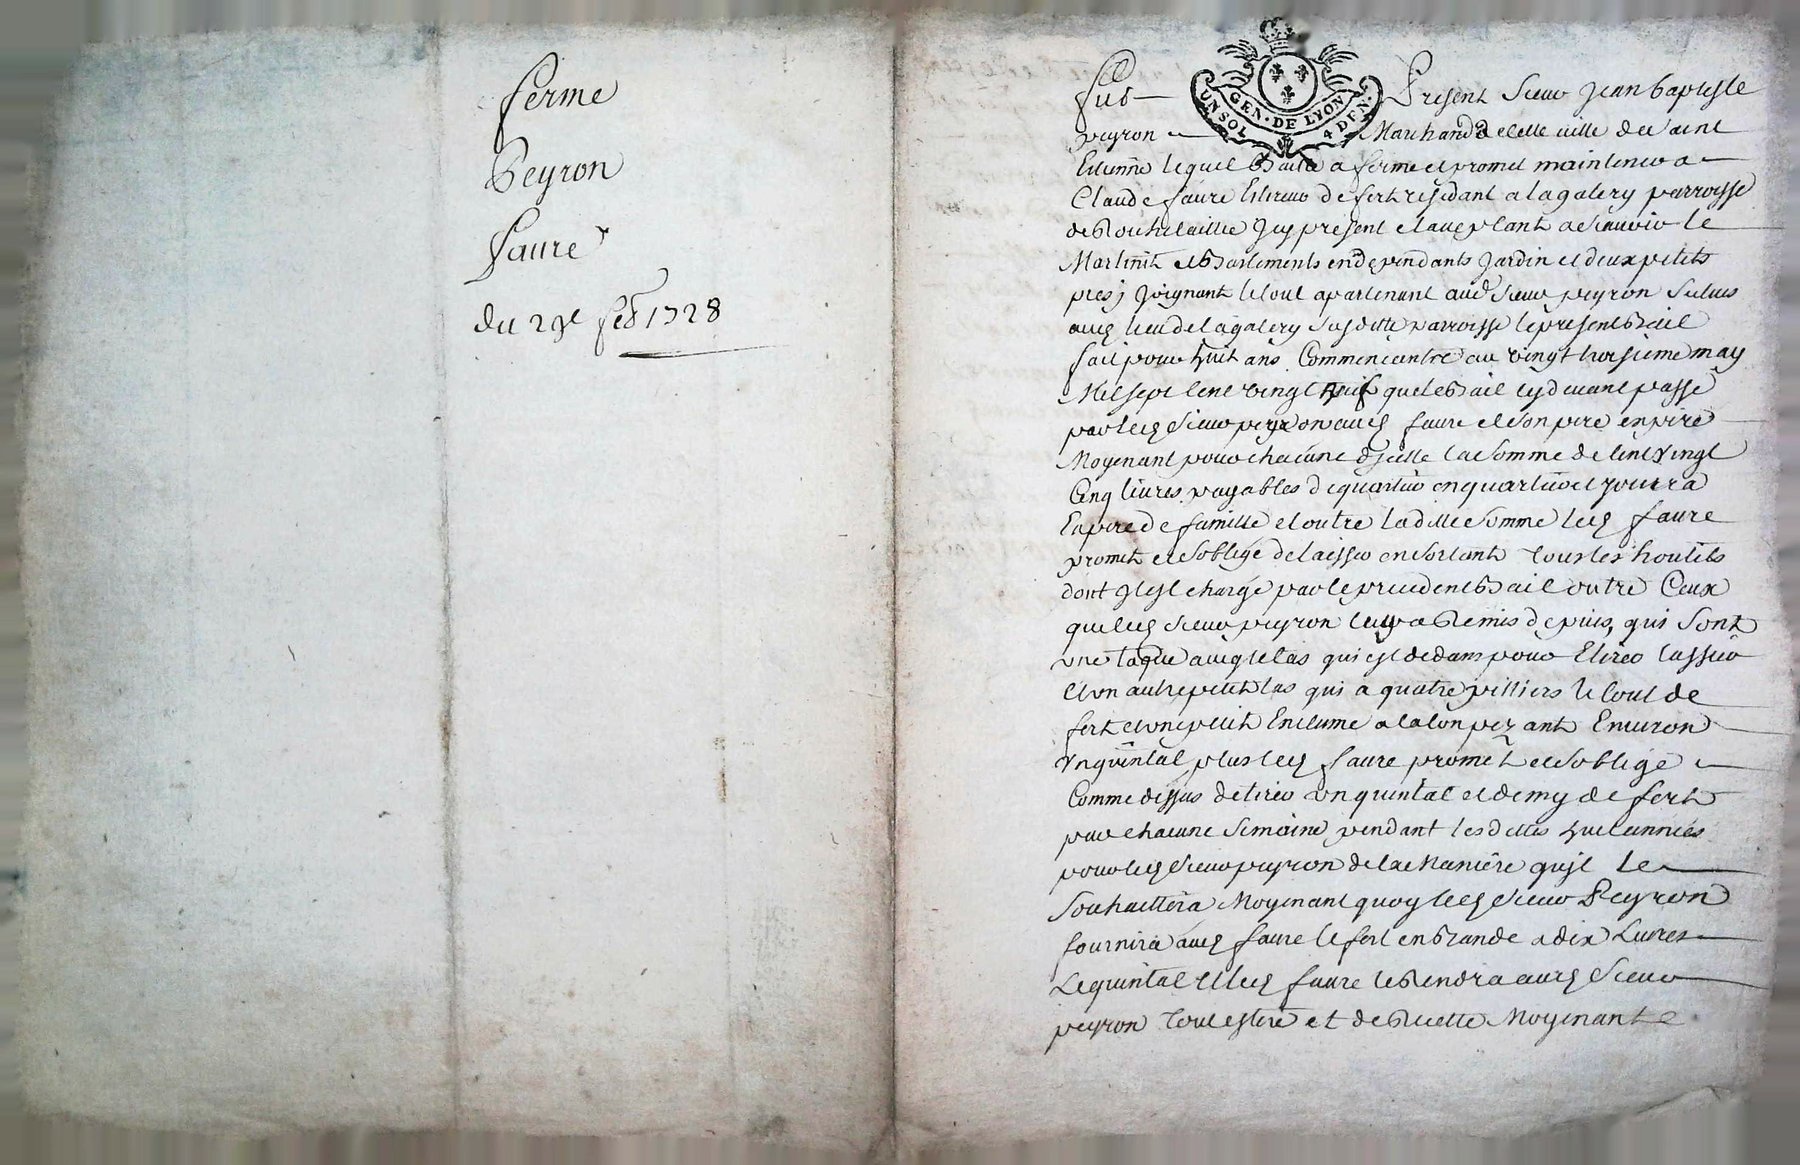 ferme
Peyron
faure
du 29e feb 1728
GEN · DE LYON
UN SOL 4 DEN ·
fut Present Sieur Jean baptiste
peyron Marchand de cette ville de saint
Etienne lequel a ferme et promet maintenir a
Claude faure Etireur de fert residant a la galery parroisse
de Rochetaillée Icy present et acceptant a scavoir le
Martinet et Bastiments en dependants Jardin et deux petits
pres Joignant le tout apartenant aud Sieur peyron situes
aud lieu de la galery susditte parroisse le present Bail
fait pour huit ans Commencants au vingt troisieme may
Mil sept cent vingt neuf que le Bail cy devant passé
par led Sieur peyron aud faure et son pere expire
Moyenant pour chacune d'jcelle la somme de cent vingt
Cinq livres payables de quartier en quartier et jouira
En pere de famille et outre la ditte somme led faure
promet et s'oblige de laisser en sortant tous les houtils
dont Il est chargé par le precedent Bail outre Ceux
que led Sieur peyron luy a Remis depuis, qui sont
une taque avec le tas qui est dedans pour Etirer l'assier
et un autre petit tas qui a quatre pilliers le tout de
fert et un petit Enclume a talon pezant Environ
Un quintal plus led faure promet et s'oblige
Comme dessus de tirer un quintal et demy de fert
par chacune semaine pendant les dittes huit années
pour led Sieur peyron de la Maniere qu'jl Le
Souhaittera Moyenant quoy led Sieur Peyron
fournira aud faure le fert en Bande a dix Livres
Le quintal et led faure le Rendra aud Sieur
peyron tout estiré et de Recette Moyenant